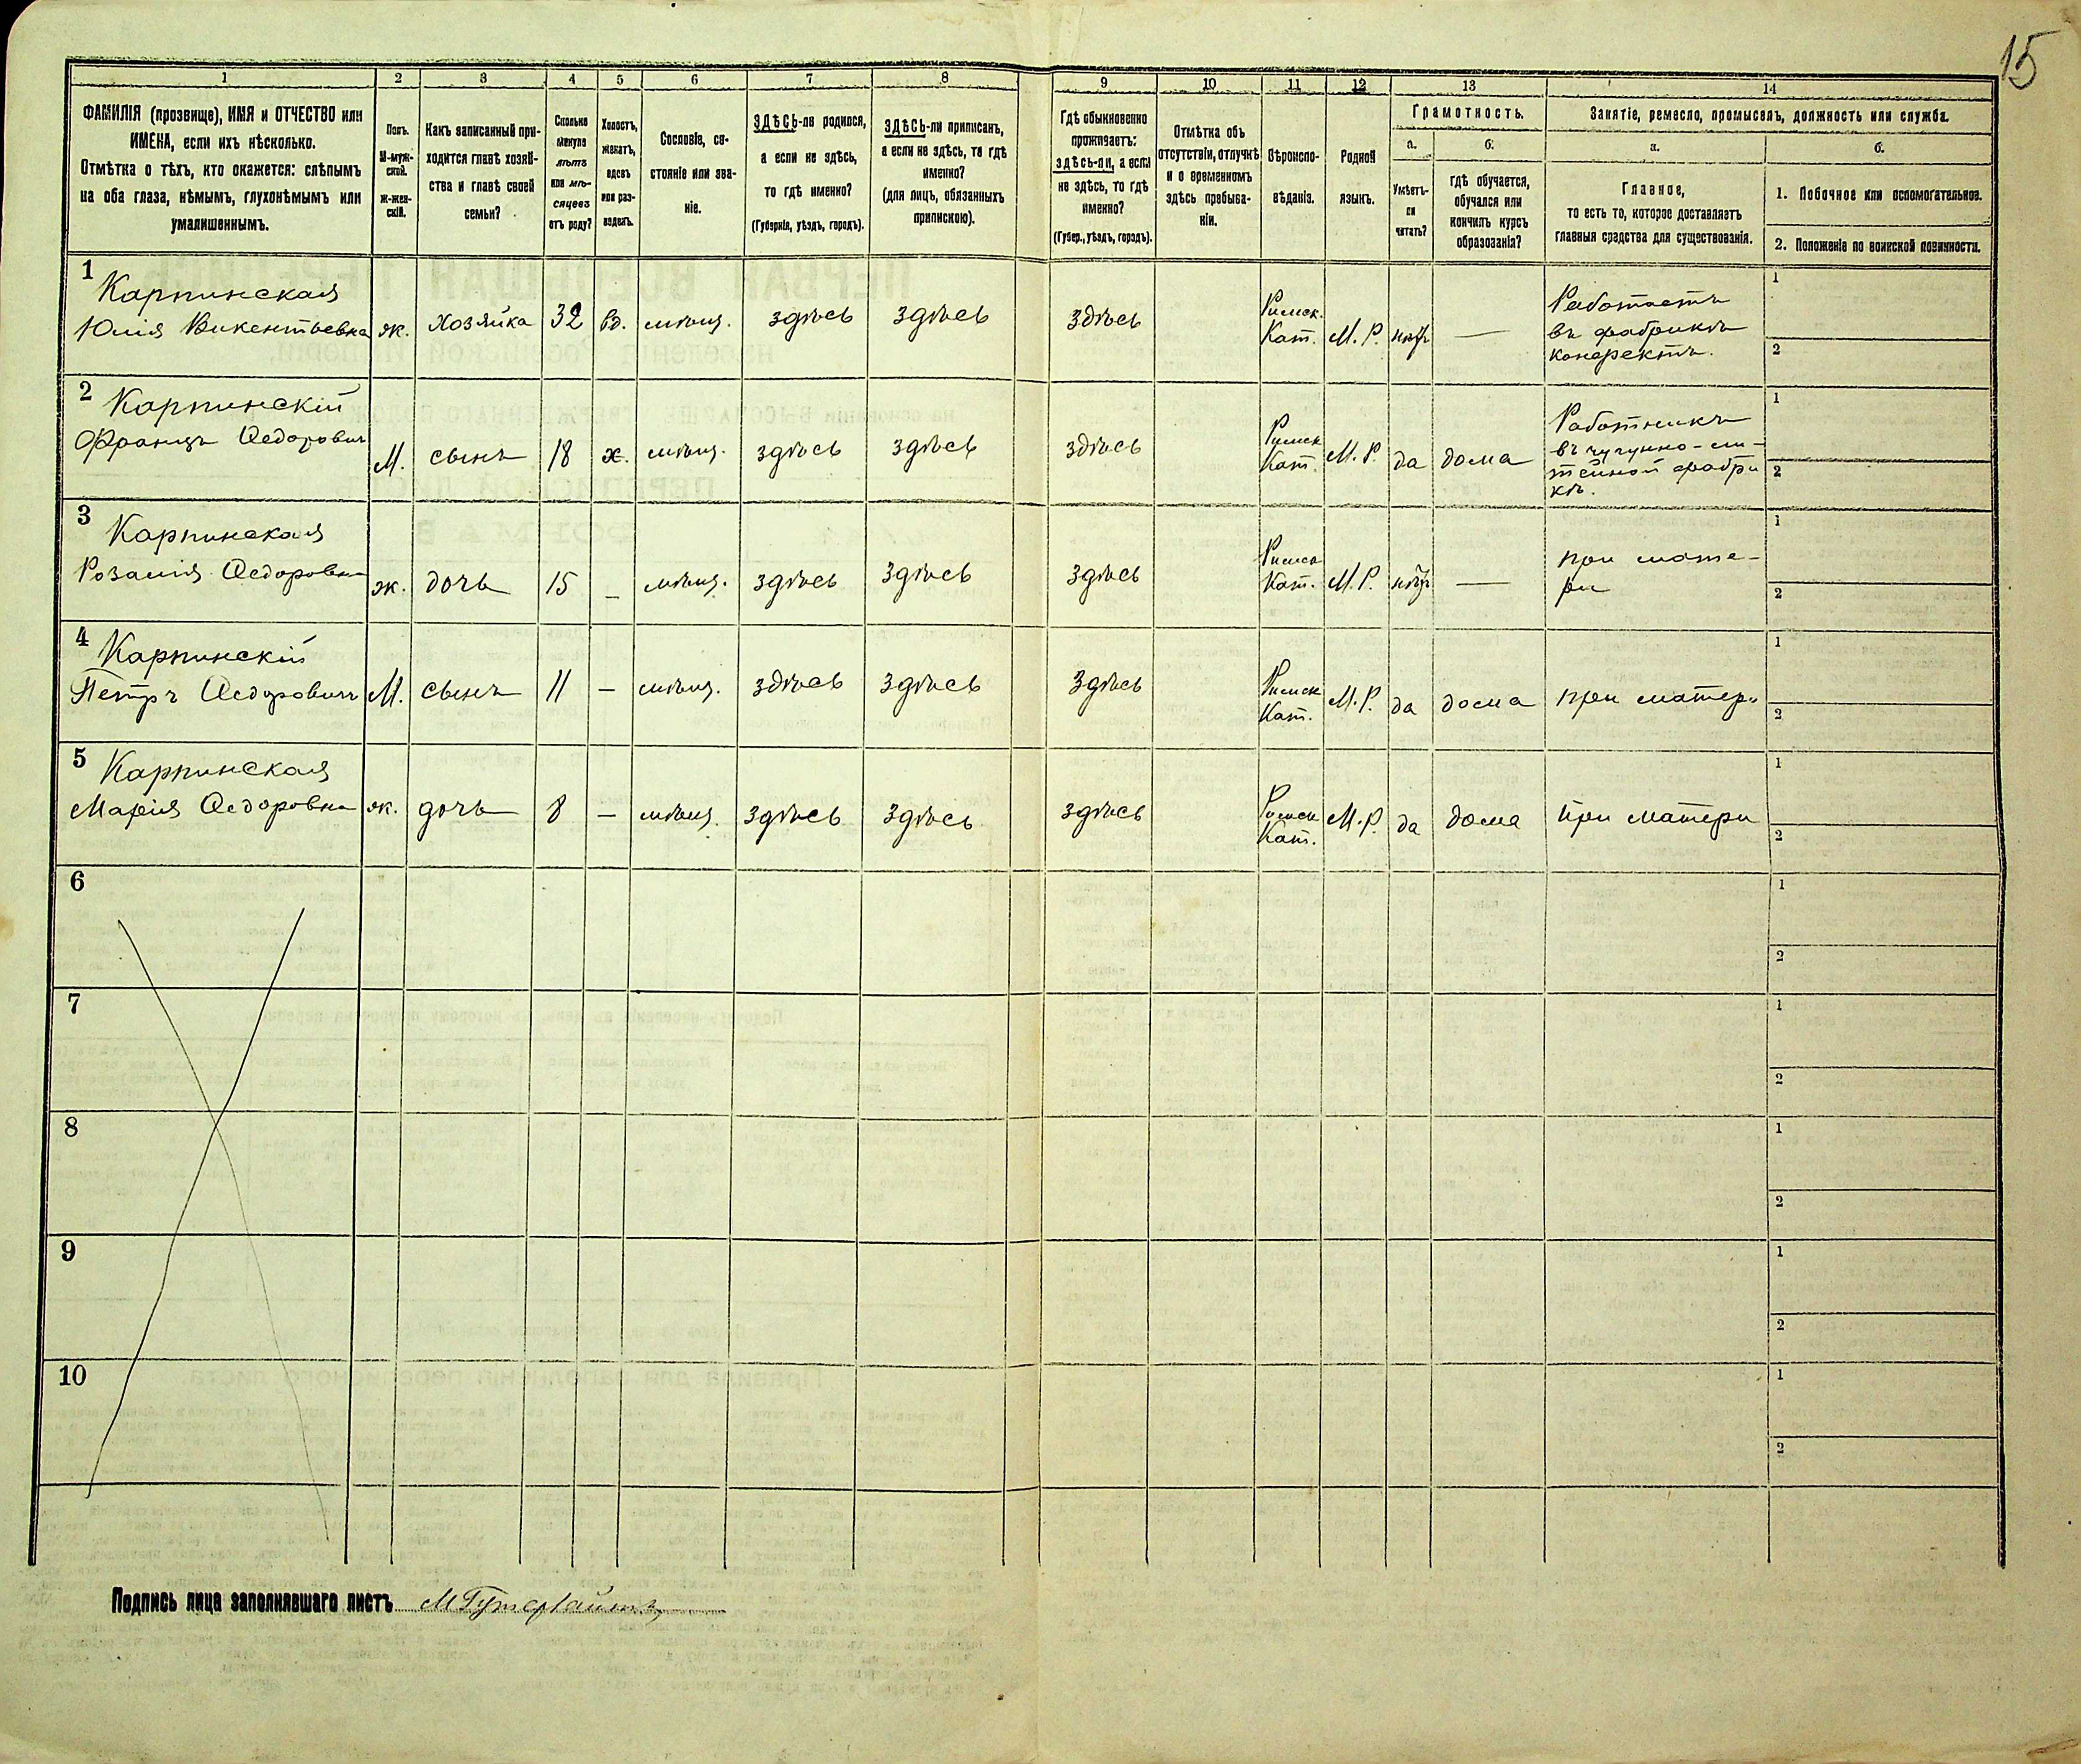 15
1 2 3 4 5 6 7 8 9 10 11 12 13 14
ФАМИЛІЯ (прозвище), ИМЯ и ОТЧЕСТВО или
ИМЕНА, если ихъ нѣсколько.
Отмѣтка о тѣхъ, кто окажется: слѣпымъ
на оба глаза, нѣмымъ, глухонѣмымъ или
умалишеннымъ.
Полъ.
М-муж-
ской.
Ж-жен-
скій.
Какъ записанный при-
ходится главѣ хозяй-
ства и главѣ своей
семьи?
Сколько
минуло
лѣтъ
или мѣ-
сяцевъ
отъ роду?
Холостъ,
женатъ,
вдовъ
или раз-
веденъ.
Сословіе, со-
стояніе или зва-
ніе.
ЗДѢСЬ-ли родился,
а если не здѣсь,
то гдѣ именно?
(Губернія, уѣздъ, городъ).
ЗДѢСЬ-ли приписанъ,
а если не здѣсь, то гдѣ
именно?
(для лицъ, обязанныхъ
припискою).
Гдѣ обыкновенно
проживаетъ:
здѣсь-ли, а если
не здѣсь, то гдѣ
именно?
(Губер., уѣздъ, городъ).
Отмѣтка объ
отсутствіи, отлучкѣ
и о временномъ
здѣсь пребыва-
ніи.
Вѣроиспо-
вѣданіе.
Родной
языкъ.
Грамотность.
а. б.
Умѣетъ-
ли
читать?
гдѣ обучается,
обучался или
кончилъ курсъ
образованія?
Занятіе, ремесло, промыселъ, должность или служба.
а. б.
Главное,
то есть то, которое доставляетъ
главныя средства для существованія.
1. Побочное или вспомогательное.
2. Положеніе по воинской повинности.
1 Карпинская
Юлія Викентьевна ж. Хозяйка 32 Вд. мѣщ. здѣсь здѣсь здѣсь Римск. Кат. М. Р. нѣтъ — Работаетъ
въ фабрикѣ
конфектъ.
1
2
2 Карпинскій
Францъ Ѳедоровичъ М. сынъ 18 х. мѣщ. здѣсь здѣсь здѣсь Римск Кат. М. Р. да дома Работникъ
въ чугунно-ли-
тейной фабри
кѣ.
1
2
3 Карпинская
Розалія Ѳедоровна ж. дочь 15 – мѣщ. здѣсь здѣсь здѣсь Римск Кат. М. Р. нѣтъ — при мате-
ри
1
2
4 Карпинскій
Петръ Ѳедоровичъ М. сынъ 11 – мѣщ. здѣсь здѣсь здѣсь Римск Кат. М. Р. да дома при матери
1
2
5 Карпинская
Марія Ѳедоровна ж. дочь 8 – мѣщ. здѣсь здѣсь здѣсь Римск Кат. М. Р. да дома при матери
1
2
6
1
2
7
1
2
8
1
2
9
1
2
10
1
2
Подпись лица заполнявшаго листъ